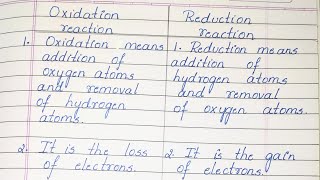 Oxidation reaction
1. Oxidation means
addition of
oxygen atoms
and removal
of hydrogen
atoms.
2. It is the loss
of electrons.
Reduction reaction
1. Reduction means
addition of
hydrogen atoms
and removal
of oxygen atoms.
2. It is the gain
of electrons.